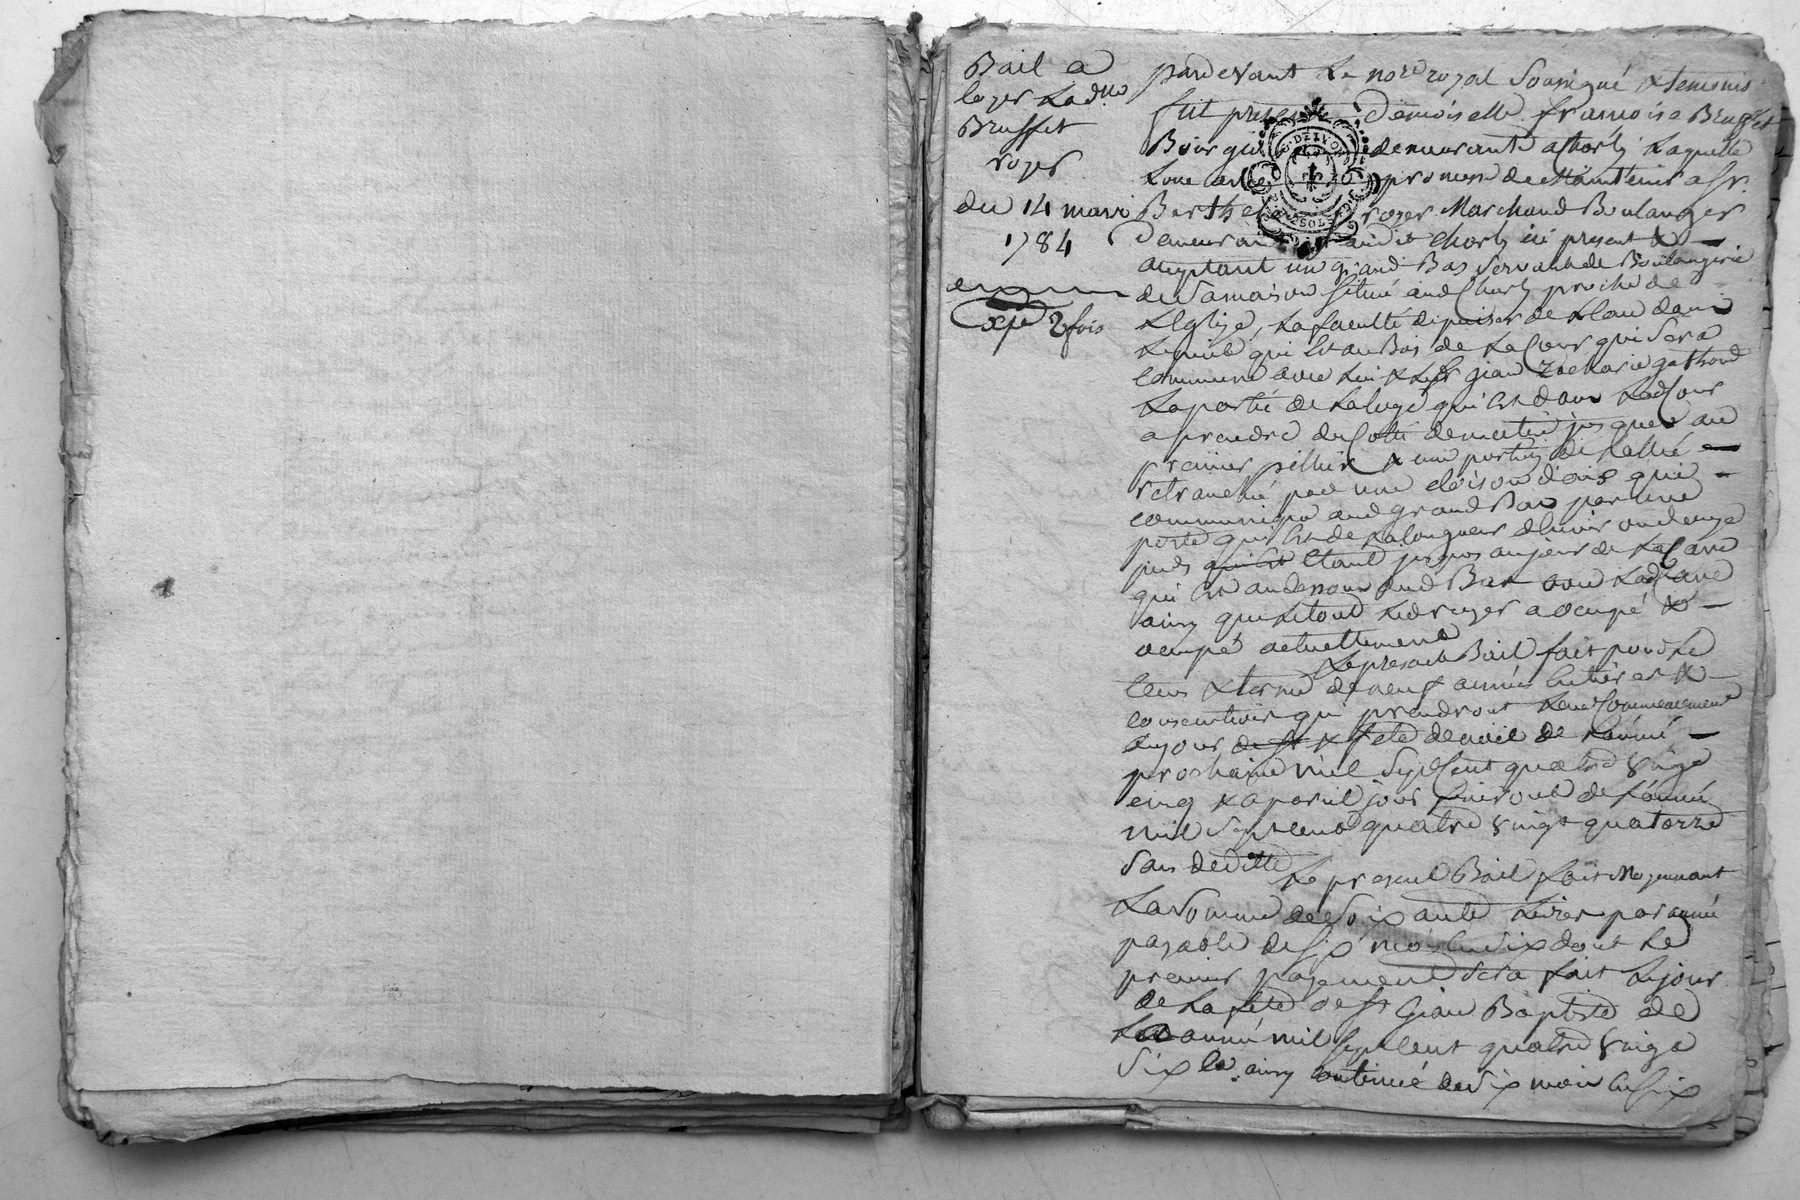 Bail a
loyer Lad.lle
Bruffet
royer
du 14 mars
1784
xpé 2 fois
pardevant Le no.re royal soussigné & temoins
fut presente Demoiselle françoise Bruffet
Bourgeoise demeurante a Chorly Laquelle
Loue avec promesse de Maintenir a Sr.
Barthelemy royer Marchand Boulanger
demeurant audit Chorly ici present & —
aceptant un grand Bas servant de Boulangerie
de Sa maison Situé aud Chorly proche de
L'Eglise, La faculté de puiser de L'eau dans
Le puit qui Est au Bas de La Cour qui Sera
commune avec Lui & Le Sr jean Zacharie
La partie de qui Est dans Lad Cour
a prendre du Coté de matin jusques au
premier pillier & une portion de —
retranché par une cloison d'ais qui —
communique aud grand Bas par une
porte qui Est de La longueur d'huit ou douze
pieds qui Est Etant jusques au jour de La Cave
qui Est au dessous dud Bas avec Lad Cave
ainsy que Le tout Led royer a ocupé & —
ocupe actuellement
Le present Bail fait pour Le
tems & terme de neuf années Entieres &
consecutives qui prendront Leur Commencement
au jour de St & fete de noël de L'année —
prochaine mil Sept Cent quatre vingt
cinq & a pareil jour finiront de L'année
mil Sept Cent quatre vingt quatorze
Sans deditte
Le present Bail fait Moyennant
La Somme de Soixante Livres par année
payable de Six mois En Six dont Le
premier payement Sera fait Le jour
de La fete de St Jean Baptiste de
L'année mil Sept Cent quatre vingt
Six & ainsy continué de Six mois En Six